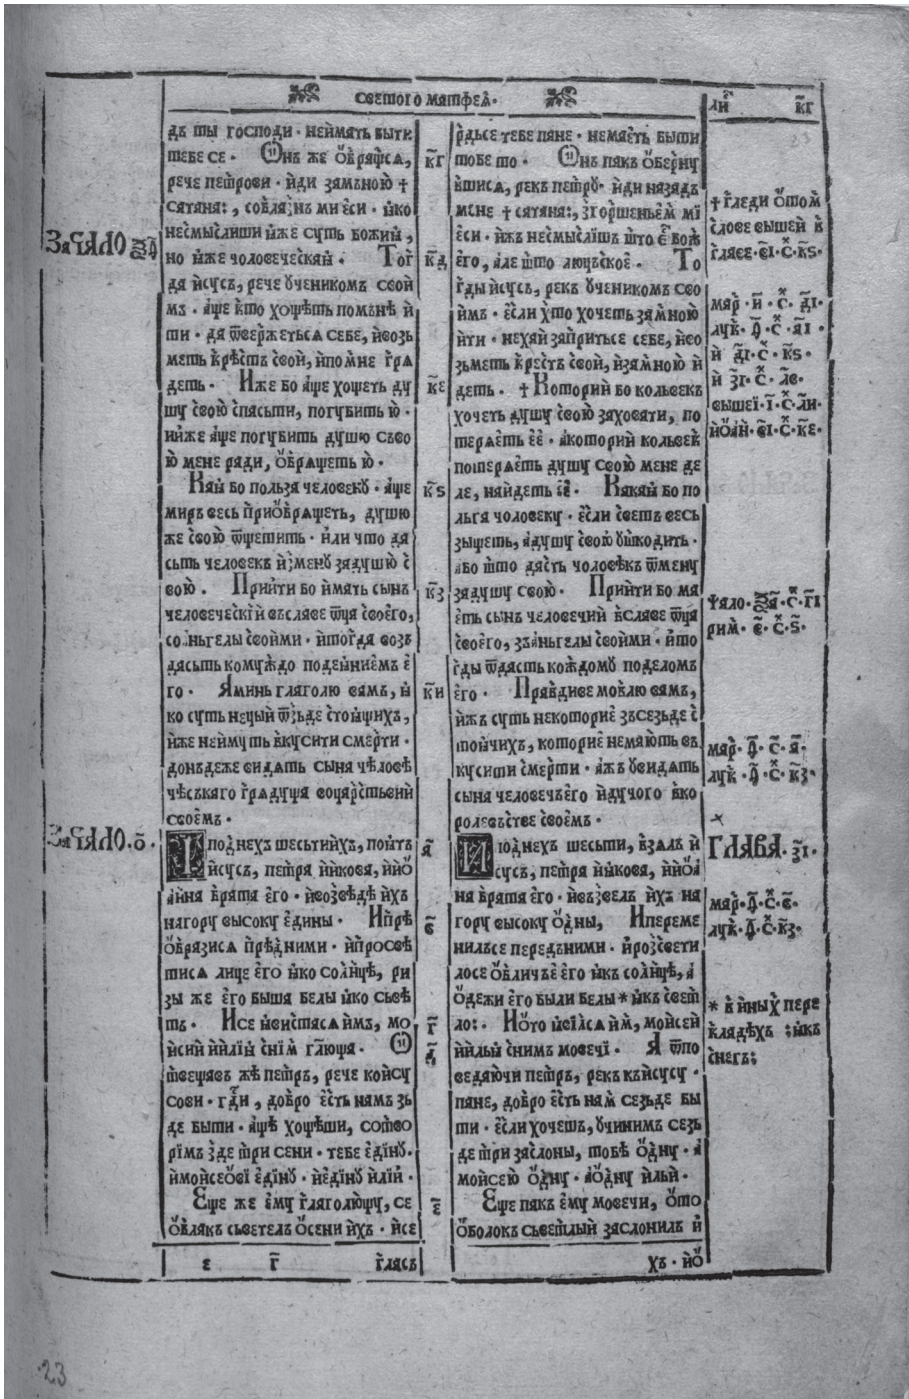 светого матфеѧ.
ли кг
дъ ты господи · неймать быти
тебе се · Ѻнъ же ѡбращсѧ,
рече петрови · йди замъною †
сатана:, соблазнъ ми еси · ꙗко
несмыслиши ꙗже суть божиꙗ,
но ꙗже человеческаꙗ · Тог
да йсусъ, рече ѹчеником своѝ
мъ · аще кто хощеть помънѣ й
ти · да ѿвержетьсѧ себе, йвозь
меть крѣстъ свой, йпомне грѧ
деть · Йже бо аще хощеть ду
шу свою спасьти, погубить ю ·
ийже аще погубить душю съво
ю мене ради, ѡбращеть ю ·
Каꙗ бо польза человеку · аще
миръ весь приѡбращеть, душю
же свою ѿщетить · или что да
сьть человекъ измену задушю с
вою · Прийти бо ймать сынъ
человеческий въславе ѿца своего,
соаньгелы своими · йтогда возъ
дасьть комуждо подеꙗниемъ е
го · Аминь глаголю вамъ, ꙗ
ко суть нецый ѿзьде стоꙗщихъ,
йже неймуть вкусити смерти ·
доньдеже видать сына чѣловѣ
чѣськаго грѧдуща воцарстьвий
своемъ ·
Заѱало ѯѳ
Заѱало · о҃ ·
По днехъ шесьтийхъ, поꙗтъ
йсусъ, петра йꙗкова, ййѡ
анна брата его · йвозведѣ йхъ
нагору высоку едины · Ипрѣ
ѡбразисѧ прѣдними · йпросвѣ
тисѧ лице его ꙗко солнцѣ, ри
зы же его быша белы ꙗко сьвѣ
тъ · Исе ꙗвистасѧ имъ, мо
йсий йилиꙗ сним глюща · Ѻ
твещавъ жѣ петръ, рече койсу
сови · гди, добро есть намъ зь
де быти · ащѣ хощѣши, сотво
римъ зде три сени · тебе едину ·
ймойсеѡви едину · йедину илии ·
Еще же ему глаголющу, се
ѡблакъ сьветелъ ѡсени ихъ · йсе
е г гласъ
кг
кд
ке
кѕ
кз
ки
а
в
г
д
е
рдьсе тебе пане · немаеть быти
тобе то · Ѻнъ пакъ ѡберну
вшисѧ, рекъ петру · йди назадъ
мене † сатана:, згоршеньем ми
еси · йжъ несмыслишъ што е бож
его, але што людьское · То
гды йсусъ, рекъ учеником сво
имъ · если хто хочеть замною
йти · нехай запритьсе себе, йво
зьметь крестъ свой, йзамною й
деть · † Который бо кольвекъ
хочеть душу свою заховати, по
терѧеть ее · акоторий кольвек
потерѧеть душу свою мене де
ле, найдеть ее · Какаꙗ бо по
льга чоловеку · если светъ весь
зыщеть, адушу свою ушкодить ·
або што дасть чоловѣкъ ѿмену
задушу свою · Прийти бо ма
еть сынъ человечий вславе ѿца
своего, зъаньгелы своими · йто
гды ѿдасть кождому поделомъ
его · Правдиве мовлю вамъ,
йжъ суть некоторие зъсезьде с
тоꙗчихъ, которие немають въ
кусити смерти · ажъ увидать
сына человечъего йдучого вко
ролевъстве своемъ ·
Июднехъ шесьти, взалъ й
сусъ, петра йꙗкова, ййѡа
на брата его · йвъзвелъ йхъ на
гору высоку ѡдны, Ипереме
нилъсе передъними · йрозсвети
лосе ѡбличъе его ꙗкъ солнцѣ, а
ѡдежи его были белы * ꙗкъ свет
ло:. Иото ꙗвилсѧ им, мойсей
ййльꙗ снимъ мовечи · А ѿпо
ведаючи петръ, рекъ къйсусу ·
пане, добро есть нам сезьде бы
ти · если хочешъ, учинимъ сезь
де три заслоны, тобѣ ѡдну · а
мойсею ѡдну · аѡдну йльй ·
Еще пакъ ему мовечи, ѡто
ѡболокъ сьветлый заслонилъ й
хъ · йѡ
† гледи ѡтом
слове вышей в
главе · ві · с · кѕ ·
мар · и · с · ді ·
лук · д · с · аі ·
й ді · с · кѕ ·
й зі · с · лв ·
вышеі · і · с · ли ·
йѡан · ві · с · ке ·
ѱало · ѯа · с · гі
рим · в · с · ѕ ·
мар · д · с · а ·
лук · д · с · кз ·
Глава · зі ·
мар · д · с · в ·
лук · д · с · кз ·
* в йных пере
кладѣхъ : ꙗкъ
снегъ:
23